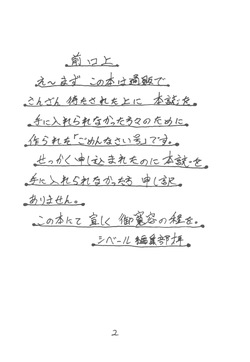 前口上
え〜まず この本は通販で
さんざん 待たされた上に 本誌を
手に入れられなかった方々のために
作られた「ごめんなさい号」です。
せっかく申し込まれたのに本誌を
手に入れられなかった方 申し訳
ありません。
この本にて 宜しく 御寛容の程を。
シベール 編集部拝
2